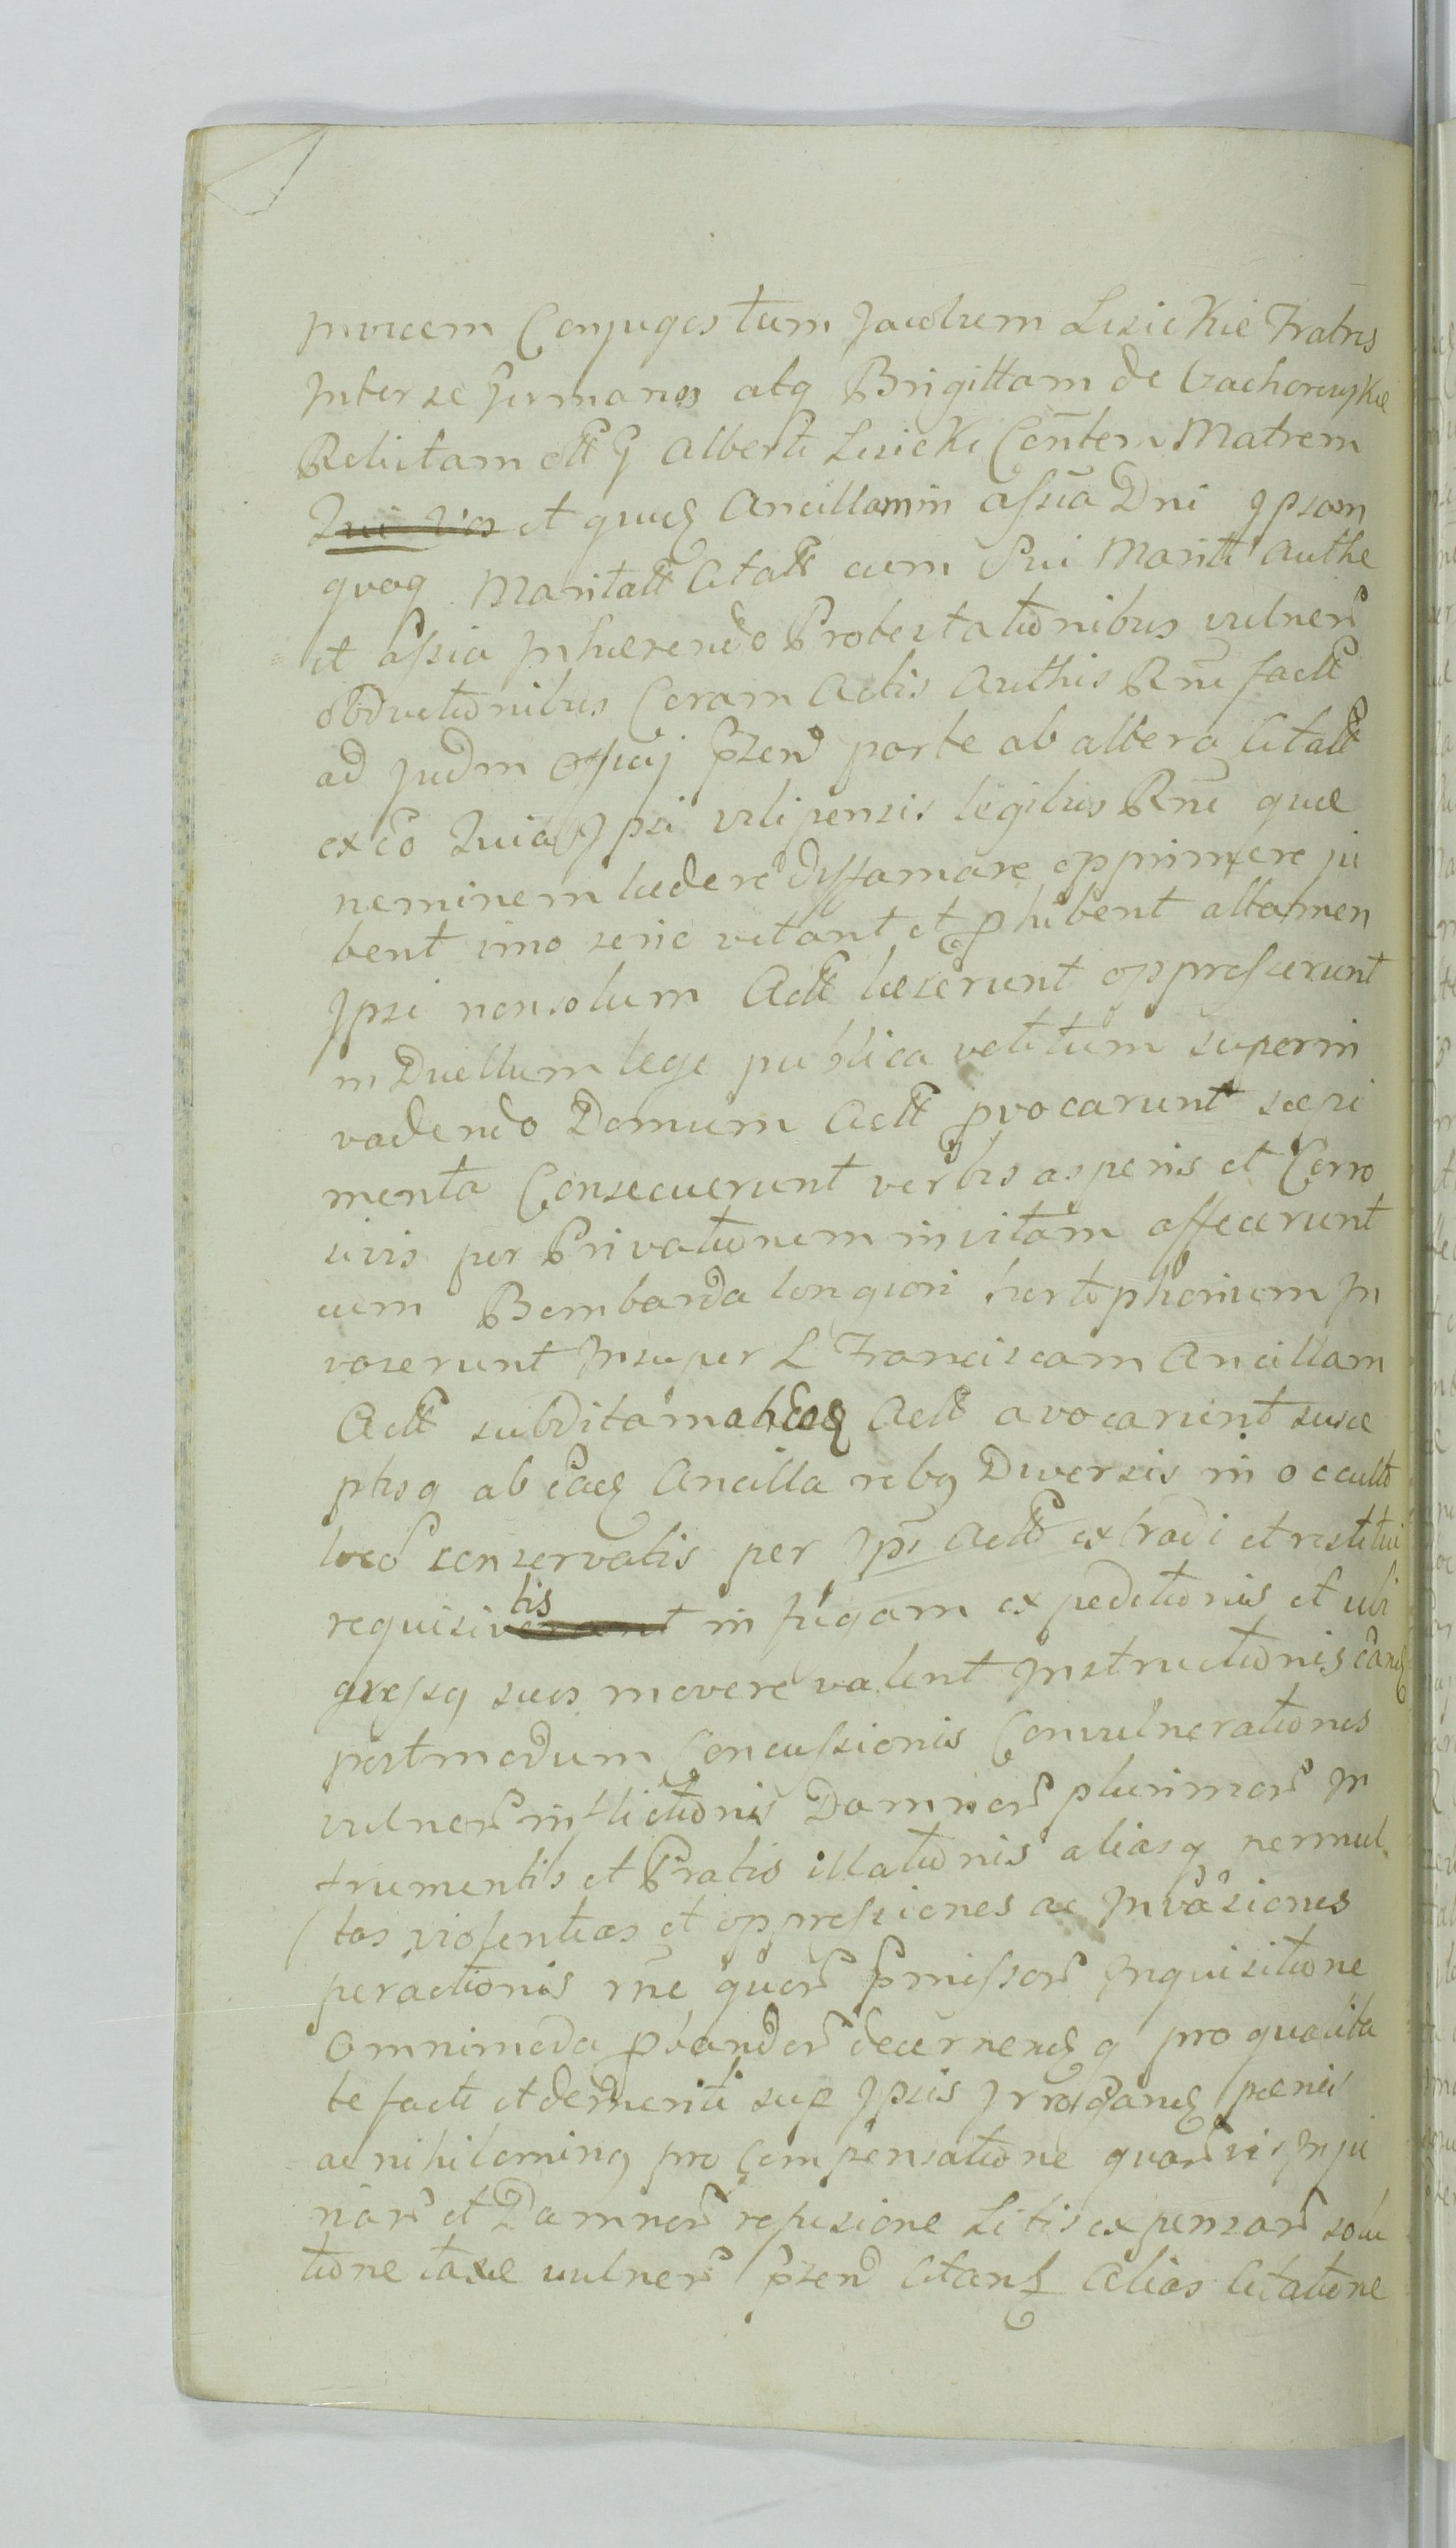 invicem Conjuges tum Jacobum Lisickie Fratres
Inter se Germanos atq Brigittam de Czachorowskie
Relictam olt G Alberti Lisicki Cönten Matrem
Qui Vos et quid Ancillam in assia Dni Ipsam
quoq Maritatt Citatt cum Sui Mariti Authe
et Assia Inhærendo Protestationibus vulner
obductionibus Coram Actis Authis Rni factt
ad Judm pzen parte ab altera Citatt
ex eo Quia Ipsi vilipensis legibus Rni quæ
neminem lædere diffamare opprimere ju
bent imo serio vetant et phibent attamen
Ipsi nonsolum Actt læserunt oppresserunt
in Duellum lege publica vetitum superin
vadendo Domum Actt pvocarunt sæpi
menta Consecuerunt verbis asperis et Corro
sivis per Privationem in vitam affecerunt
cum Bombarda longiori hortophorium In
vaserunt Insuper L Franciscam Ancillam
Actt subditam ab Actt avocarunt susce
ptisq ab eadq Ancilla rebq Diversis in occulto
loco conservatis per Ips Actt extradi et restitui
requisitis in fugam expeditionis et ubi
gressq suos movere valent Instructionis eand
postmodum Concussionis Convulnerationis
vulner inflictionis Damnor plurimor In
frumentis et Pratis illationis aliasq permul
tas violentias et oppressiones ac Invasiones
peractionis rne quor pmissor Inquisitione
omnimoda pbandor decernend q pro qualita
te facti et demeriti sup Ipsis Irrogand pænis
ac nihilominq pro Compensatione quarvis Inju
riar et Damnor refusione Litis expensar solu
tione taxæ vulner pzen Citand Alias Citatione